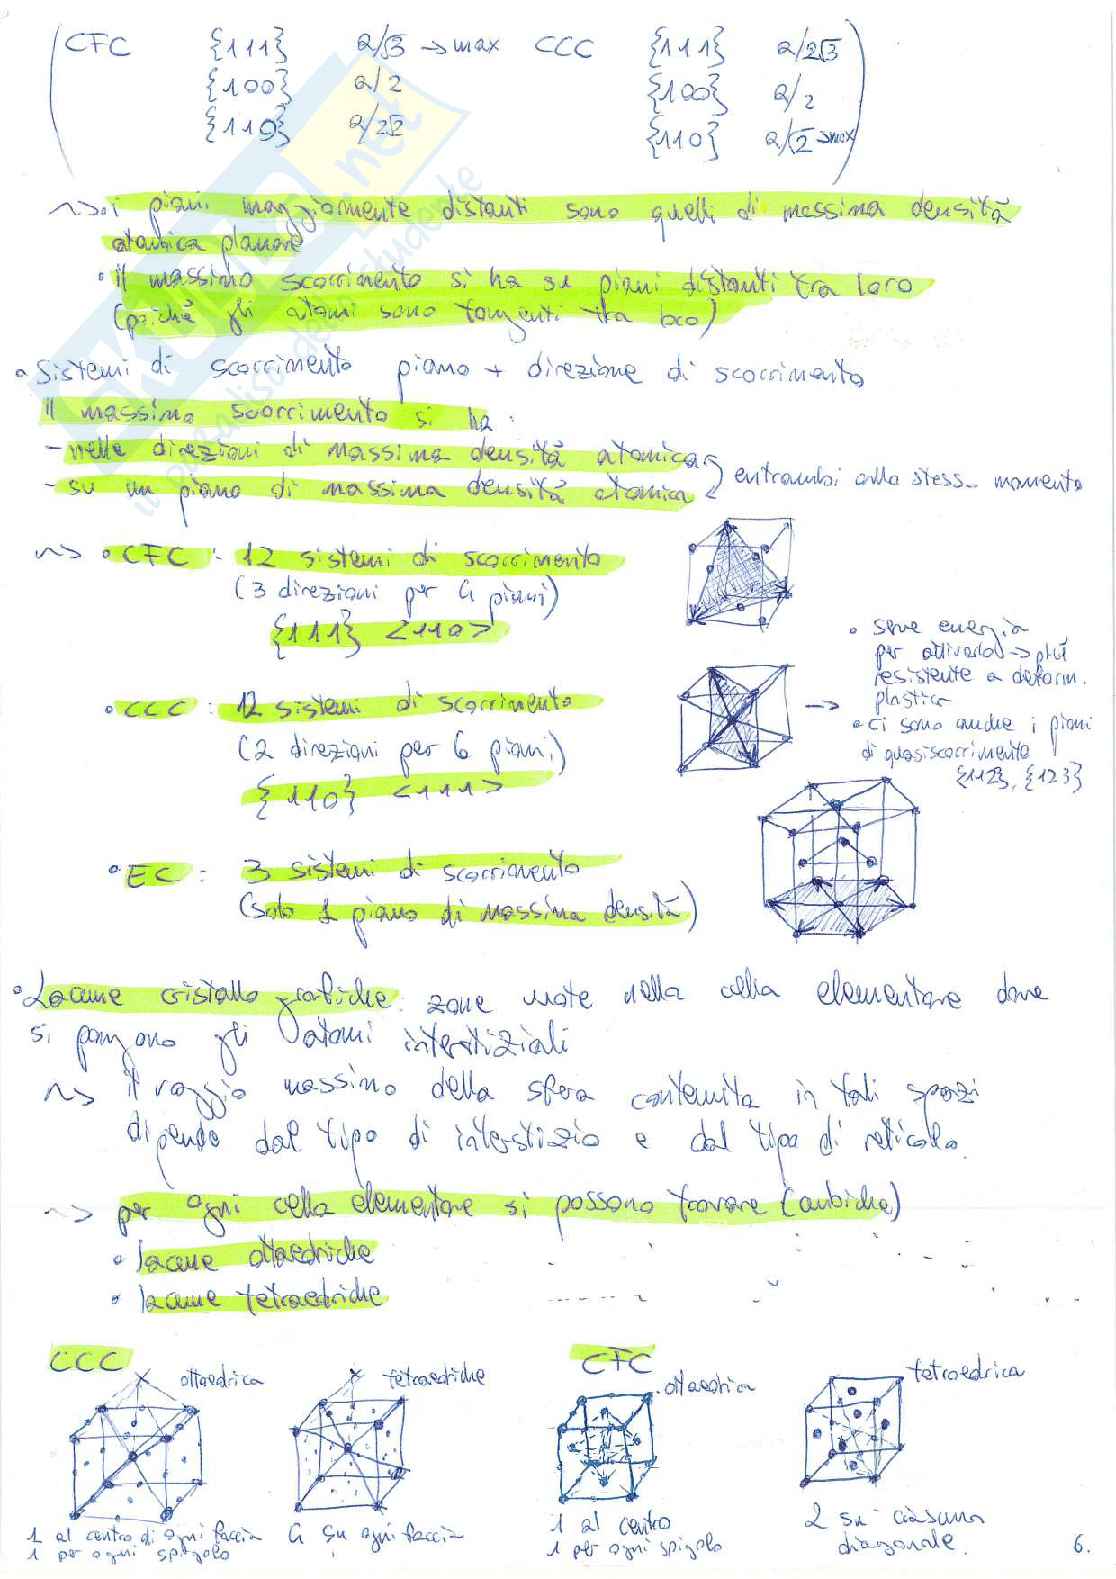 CFC {111} a/√3 → max CCC {111} a/2√3
{100} a/2 {100} a/2
{110} a/2√2 {110} a/√2 → max
~> i piani maggiormente distanti sono quelli di massima densità
atomica planare
• il massimo scorrimento si ha se piani distanti tra loro
(poiché gli atomi sono tangenti tra loro)
• Sistemi di scorrimento piano + direzione di scorrimento
il massimo scorrimento si ha:
- nelle direzioni di massima densità atomica
- su un piano di massima densità atomica
entrambi allo stess_ momento
~> • CFC: 12 sistemi di scorrimento
(3 direzioni per 4 piani)
{111} <110>
• serve energia
per attivarlo → più
resistente a deform.
plastica
• ci sono anche i piani
di quasiscorrimento
{112}, {123}
• CCC: 12 sistemi di scorrimento
(2 direzioni per 6 piani)
{110} <111>
• EC: 3 sistemi di scorrimento
(solo 1 piano di massima densità)
• Lacune cristallografiche: zone vuote nella cella elementare dove
si pongono gli atomi interstiziali
~> il raggio massimo della sfera contenuta in tali spazi
dipende dal tipo di interstizio e dal tipo di reticolo.
~> per ogni cella elementare si possono trovare (cubiche)
• lacune ottaedriche
• lacune tetraedriche
CCC
ottaedrica
tetraedriche
CFC
ottaedrica
tetraedrica
1 al centro di ogni faccia
1 per ogni spigolo
4 su ogni faccia
1 al centro
1 per ogni spigolo
2 su ciascuna
diagonale.
6.